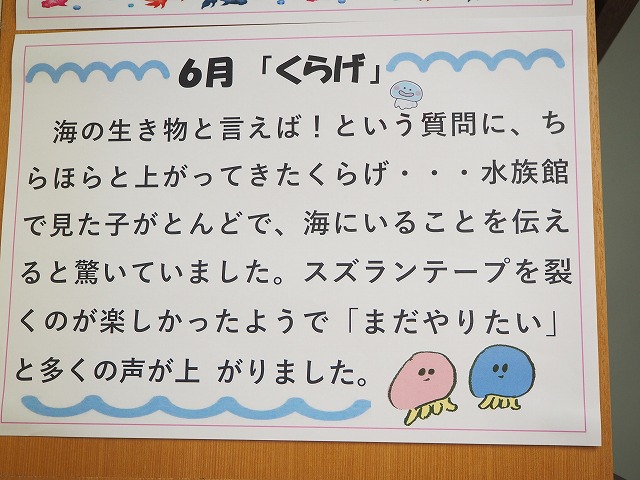 6月「くらげ」
海の生き物と言えば！という質問に、ち
らほらと上がってきたくらげ・・・水族館
で見た子がとんどで、海にいることを伝え
ると驚いていました。スズランテープを裂
くのが楽しかったようで「まだやりたい」
と多くの声が上 がりました。